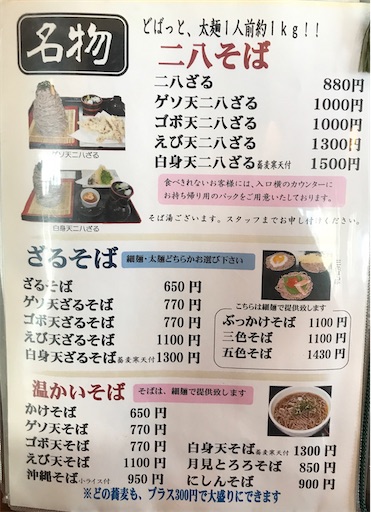 名物
どばっと、太麺1人前約1kg!!
二八そば
二八ざる 880円
ゲソ天二八ざる 1000円
ゴボ天二八ざる 1000円
えび天二八ざる 1300円
白身天二八ざる蕎麦寒天付 1500円
ゲソ天二八ざる
白身天二八ざる
食べきれないお客様には、入口横のカウンターに
お持ち帰り用のパックをご用意いたしております。
そば湯ございます。スタッフまでお申し付けください。
ざるそば 細麺・太麺どちらかお選び下さい
ざるそば 650円
ゲソ天ざるそば 770円
ゴボ天ざるそば 770円
えび天ざるそば 1100円
白身天ざるそば蕎麦寒天付 1300円
こちらは細麺で提供致します
ぶっかけそば 1100円
三色そば 1100円
五色そば 1430円
温かいそば そばは、細麺で提供致します
かけそば 650円
ゲソ天そば 770円
ゴボ天そば 770円
えび天そば 1100円
沖縄そば小ライス付 950円
白身天そば蕎麦寒天付 1300円
月見とろろそば 850円
にしんそば 900円
※どの蕎麦も、プラス300円で大盛りにできます